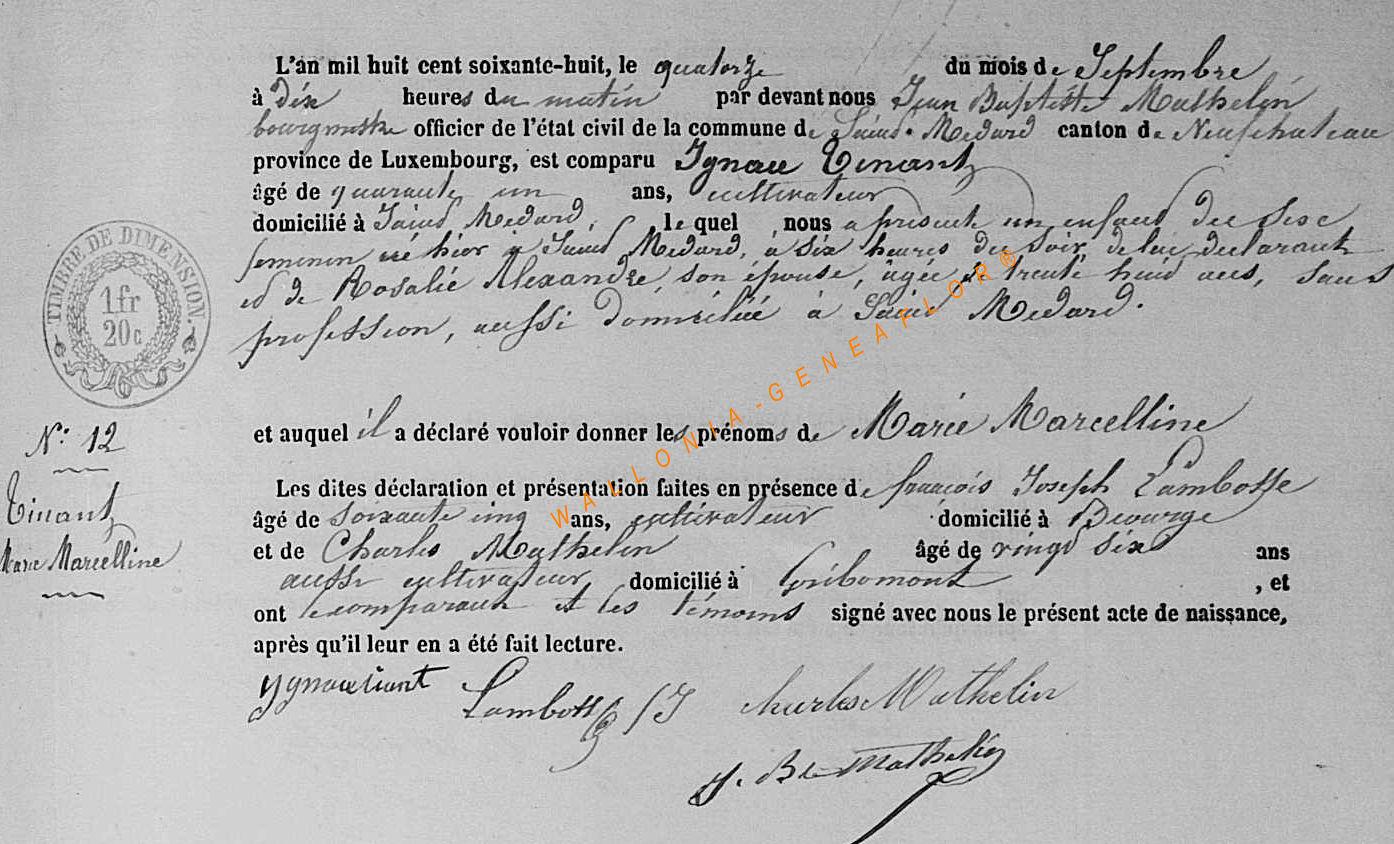 L'an mil huit cent soixante-huit, le quatorze du mois de Septembre
à dix heures du matin par devant nous Jean Baptiste Mathelin
bourgmestre officier de l'état civil de la commune de Saint-Médard canton de Neufchateau
province de Luxembourg, est comparu Ignace Tinant
âgé de quarante un ans, cultivateur
domicilié à Saint Médard, lequel nous a présenté un enfant du sexe
feminin né hier à Saint Médard, à six heures du soir de lui déclarant
et de Rosalie Alexandre, son épouse, agée de trente huit ans, sans
profession, aussi domiciliée à Saint Médard.
TIMBRE DE DIMENSION
1fr
20c
N° 12
Tinant
Marie Marcelline
et auquel il a déclaré vouloir donner les prénoms de Marie Marcelline
Les dites déclaration et présentation faites en présence de françois Joseph Lambotte
âgé de soixante cinq ans, cultivateur domicilié à Biourge
et de Charles Mathelin âgé de vingt six ans
aussi cultivateur, domicilié à Gribomont, et
ont le comparant et les témoins signé avec nous le présent acte de naissance,
après qu'il leur en a été fait lecture.
ygnace tinant Lambotte f J charles Mathelin
J. Bte Mathelin
WALLONIA-GENEAFLOR®